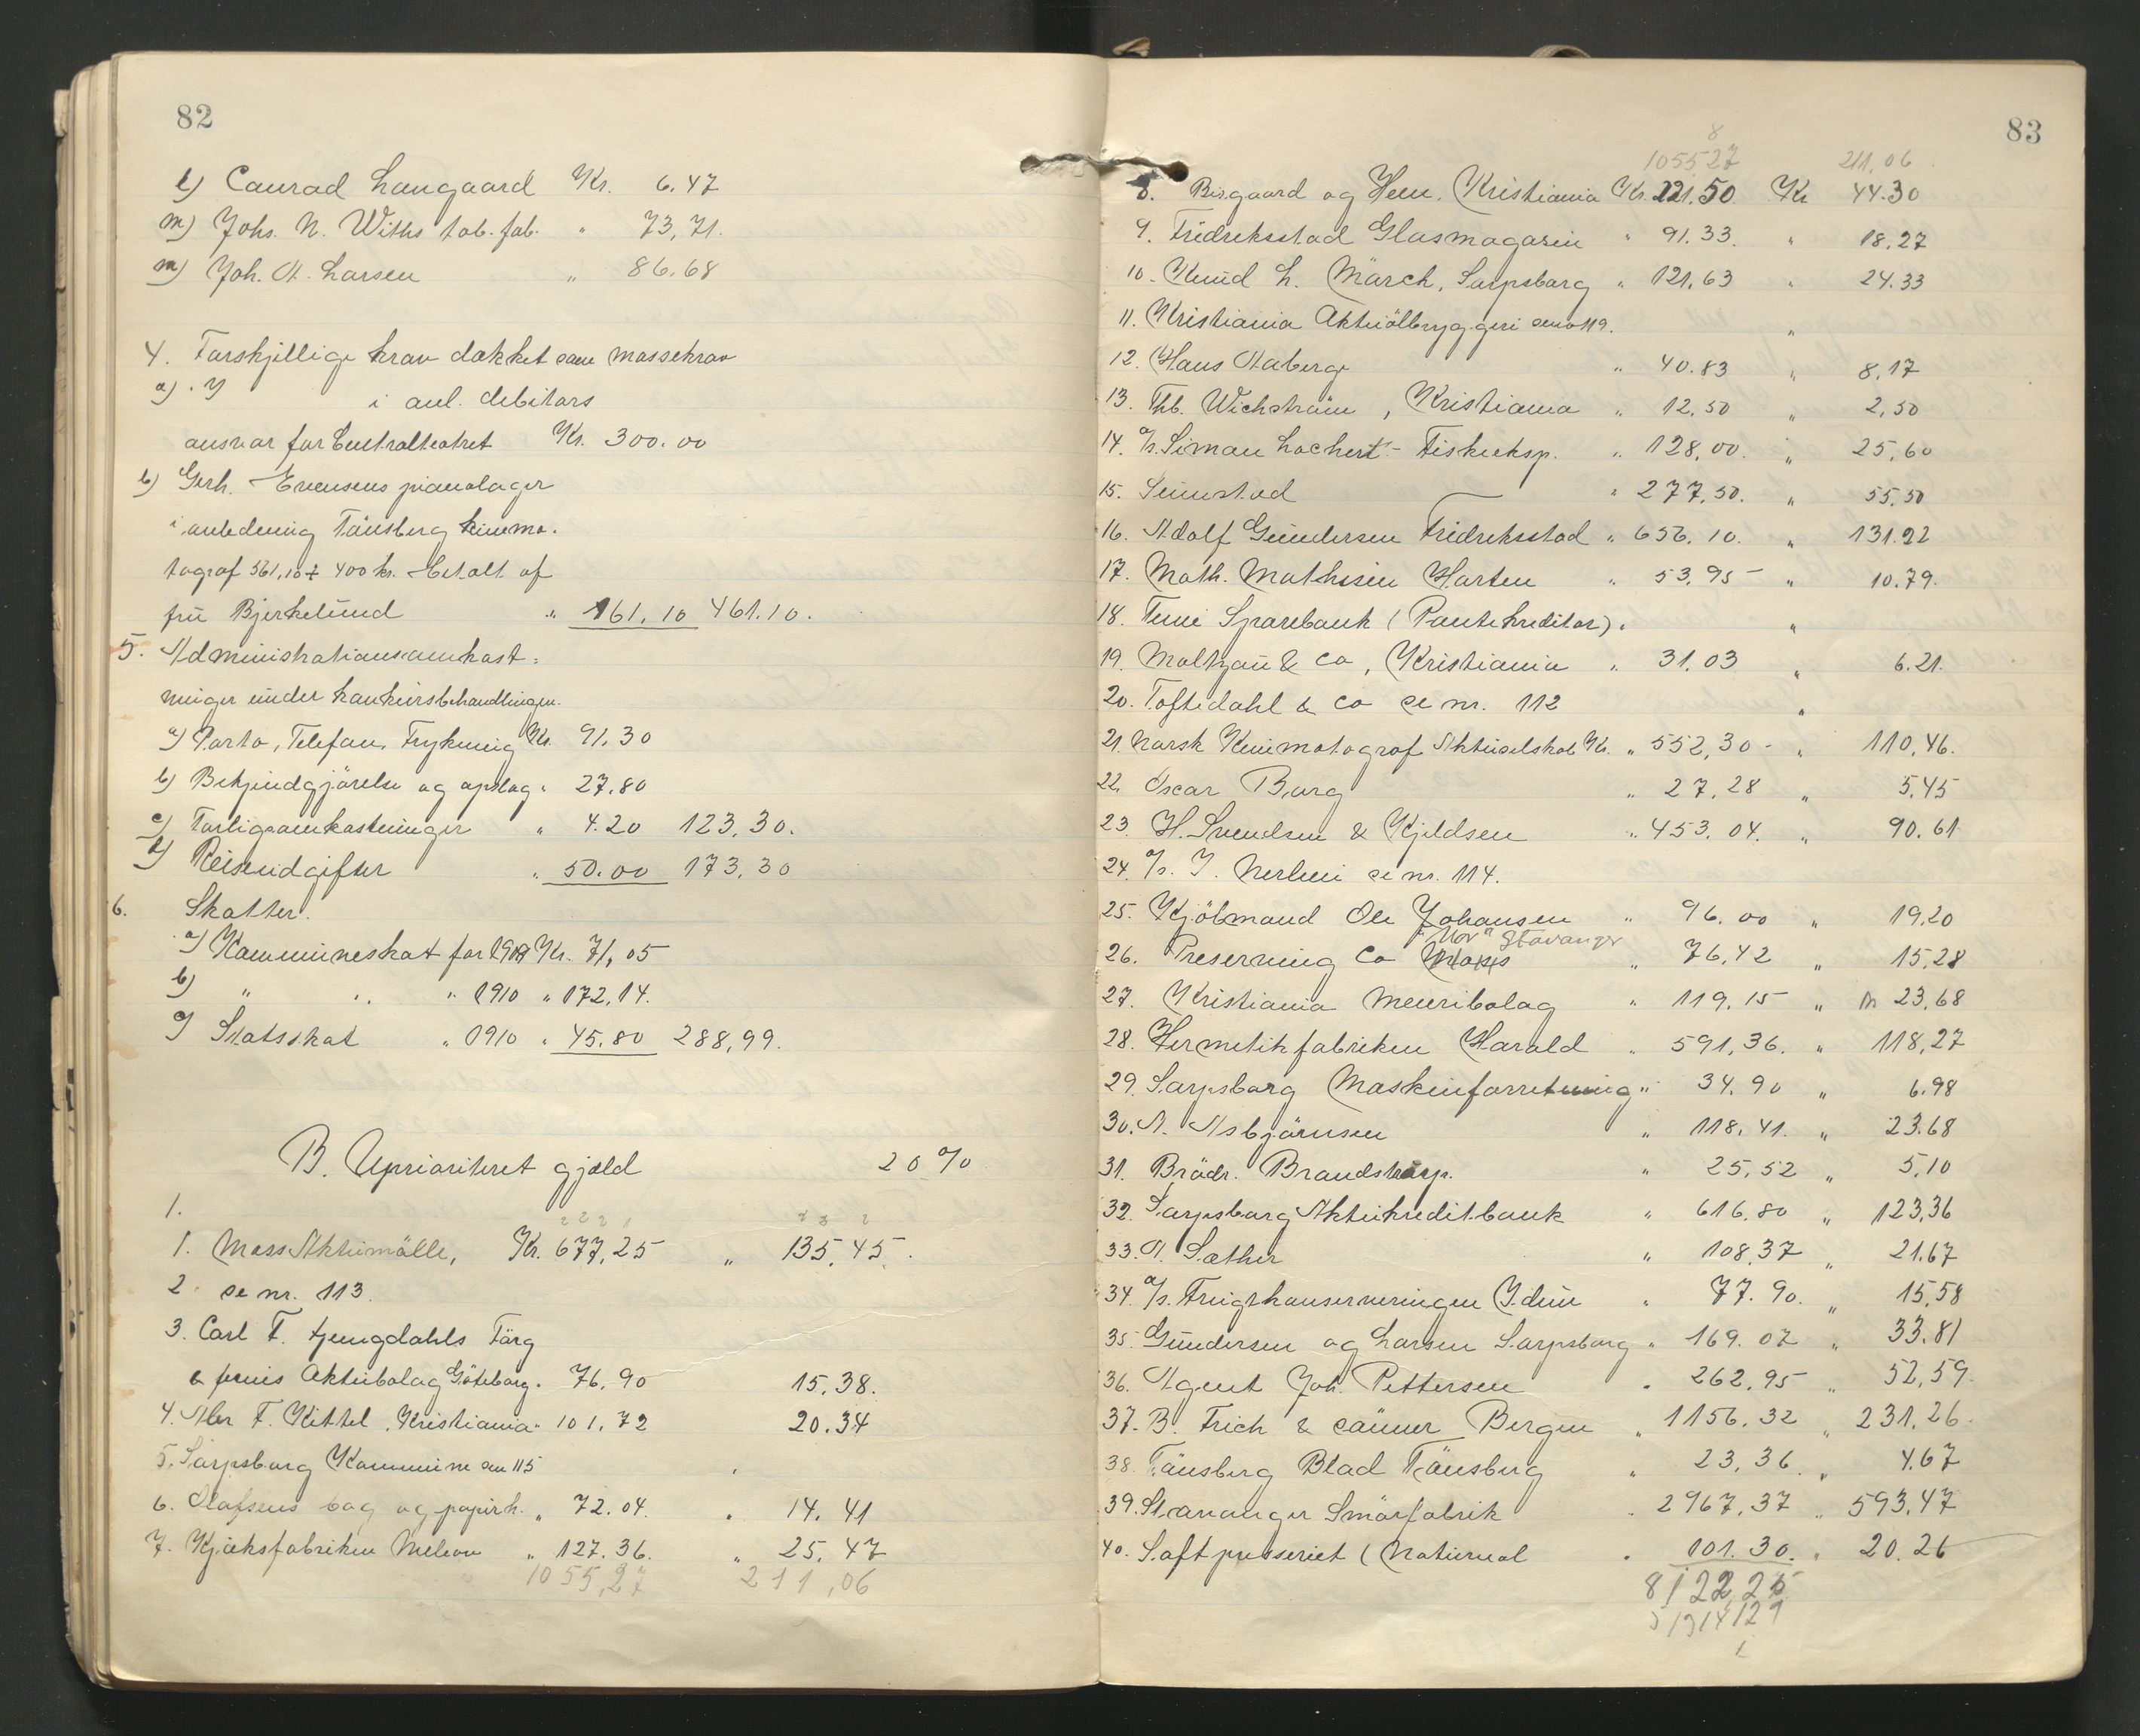 82
l) Conrad Langaard Kr. 6.47
m) Johs. N. Withs tob. fab. " 73,71.
n) Joh. A. Larsen " 86.68
4. Forskjellige krav dækket som massekrav
a) i anl. debitors
ansvar for Centralteatret Kr. 300.00
b) Gerh. Evensens pianolager
i anledning Tönsberg kinema-
tograf 561,10 ÷ 400 kr. betalt af
fru Bjerkelund " 161,10 461.10.
5. Administrationsomkost-
ninger under konkursbehandlingen.
a) Porto, Telefon, Trykning Kr. 91.30
b) Bekjendgjörelse og opslag " 27.80
c) Forligsomkostninger " 4.20 123.30.
d) Reiseudgifter " 50.00 173.30
6. Skatter.
a) Kommuneskat for 1909 Kr. 71,05
b) " " " 1910 " 172,14.
c) Statsskat " 1910 " 45.80 288,99.
B. Uprioritert gjæld 20 %
1.
1. Moss Aktiemölle, Kr. 677,25 " 135,45.
2. se nr. 113.
3. Carl F. Ljungdahls Färg
& fernis Aktiebolag Göteborg. 76,90 15,38.
4. Alex F. Kittel, Kristiania " 101,72 20.34
5. Sarpsborg Kommune se nr 115 "
6. Olafsens bog og papirh. " 72.04. " 14,41
7. Kjæksfabriken Melian " 127.36. " 25,47
1055,27 211,06
83
8
105527 211,06
8. Bisgaard og Hem. Kristiania Kr. 221.50 Kr 44.30
9. Fredriksstad Glasmagasin " 91.33. " 18.27
10. Knud L. Märch, Sarpsborg " 121,63 " 24.33
11. Kristiania Aktieölbryggeri se no 119. "
12. Hans Aaberg " 40.83 " 8,17
13. Thb. Wichström, Kristiania " 12,50 " 2,50
14. A/s. Simon Lochert - Fiskeeksp. " 128,00. " 25,60
15. Seierstad " 277,50. " 55.50
16. Adolf Gundersen Fredriksstad " 656,10. " 131.22
17. Math. Mathisen Horten " 53,95 - " 10.79.
18. Tune Sparebank (Pantekreditor). "
19. Moltzau & Co, Kristiania " 31.03 " 6.21.
20. Toftedahl & Co se nr. 112 "
21. Norsk Kinematograf Aktieselskab Kr. " 552,30 - " 110,46.
22. Oscar Borg " 27,28 " 5,45
23. H. Svendsen & Kjeldsen " 453.04. " 90.61
24. A/s. I. Nerlien se nr. 114.
25. Kjöbmand Ole Johansen " 96.00 " 19,20
"Nor" Stavanger
26. Preserving Co Moss " 76,42 " 15,28
27. Kristiania Meieribolag " 119,15 " 23,68
28. Hermetikfabriken Harald " 591,36. " 118,27
29. Sarpsborg Maskinforretning " 34.90 " 6.98
30. A. Asbjörnsen " 118,41. " 23.68
31. Brödr. Brandstorp. " 25,52 " 5,10
32. Sarpsborg Aktiekreditbank " 616.80 " 123,36
33. A. Sæther " 108,37 " 21.67
34. A/s. Frugtkonserveringen Idun " 77.90. " 15,58
35. Gundersen og Larsen Sarpsborg " 169.07 " 33.81
36. Agent Joh. Pettersen " 262,95 " 52,59.
37. B. Frich & sönner Bergen " 1156.32 " 231,26.
38. Tönsberg Blad Tönsberg " 23,36. " 4.67
39. Stavanger Smörfabrik " 2967,37 " 593,47
40. Saftpresseriet (National " 101.30. " 20.26
8122,25